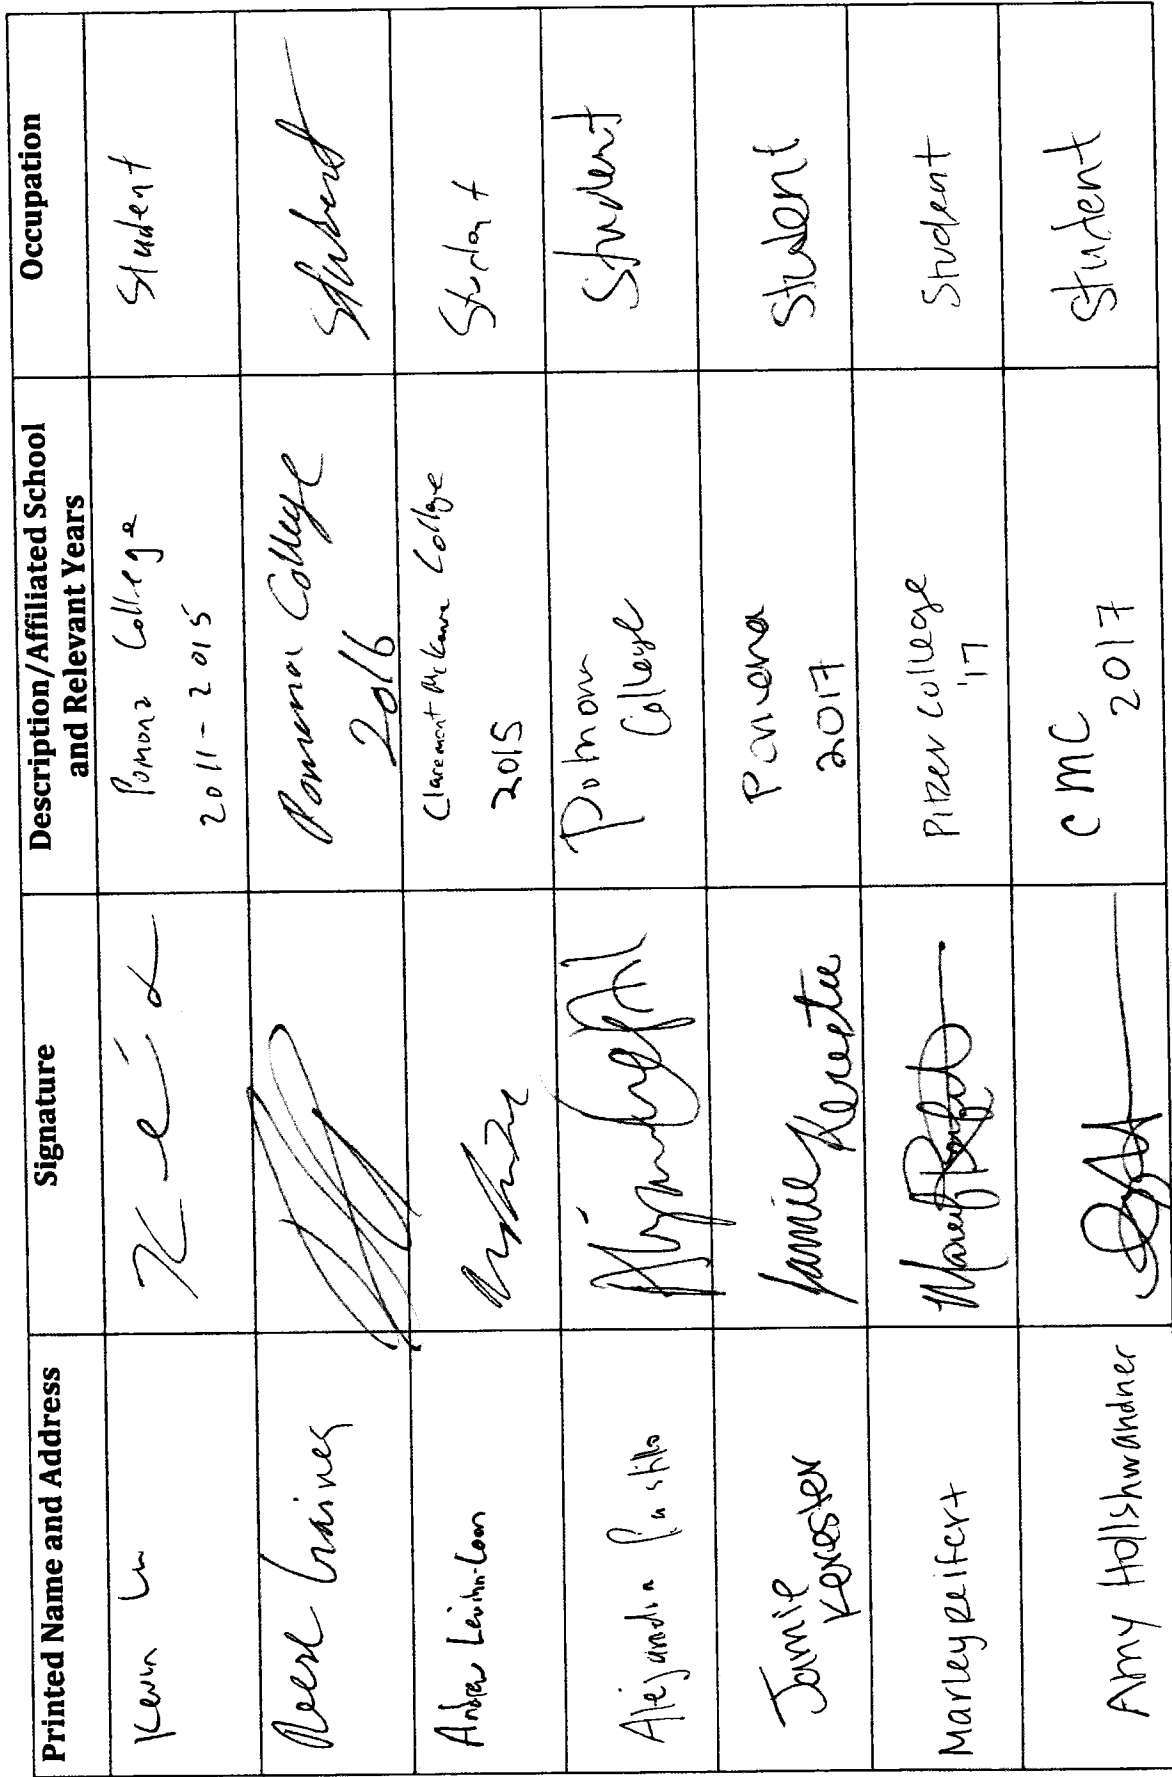 Printed Name and Address
Signature
Description/Affiliated School
and Relevant Years
Occupation
Kevin
Pomona College
2011-2015
Student
Pomona College
2016
Student
Andrew
Claremont McKenna College
2015
Student
Alejandra
Pomona
College
Student
Jamie
Kerester
Jamie Kerester
Pomona
2017
Student
Marley
Pitzer College
'17
Student
Amy Hollshwandner
CMC
2017
Student